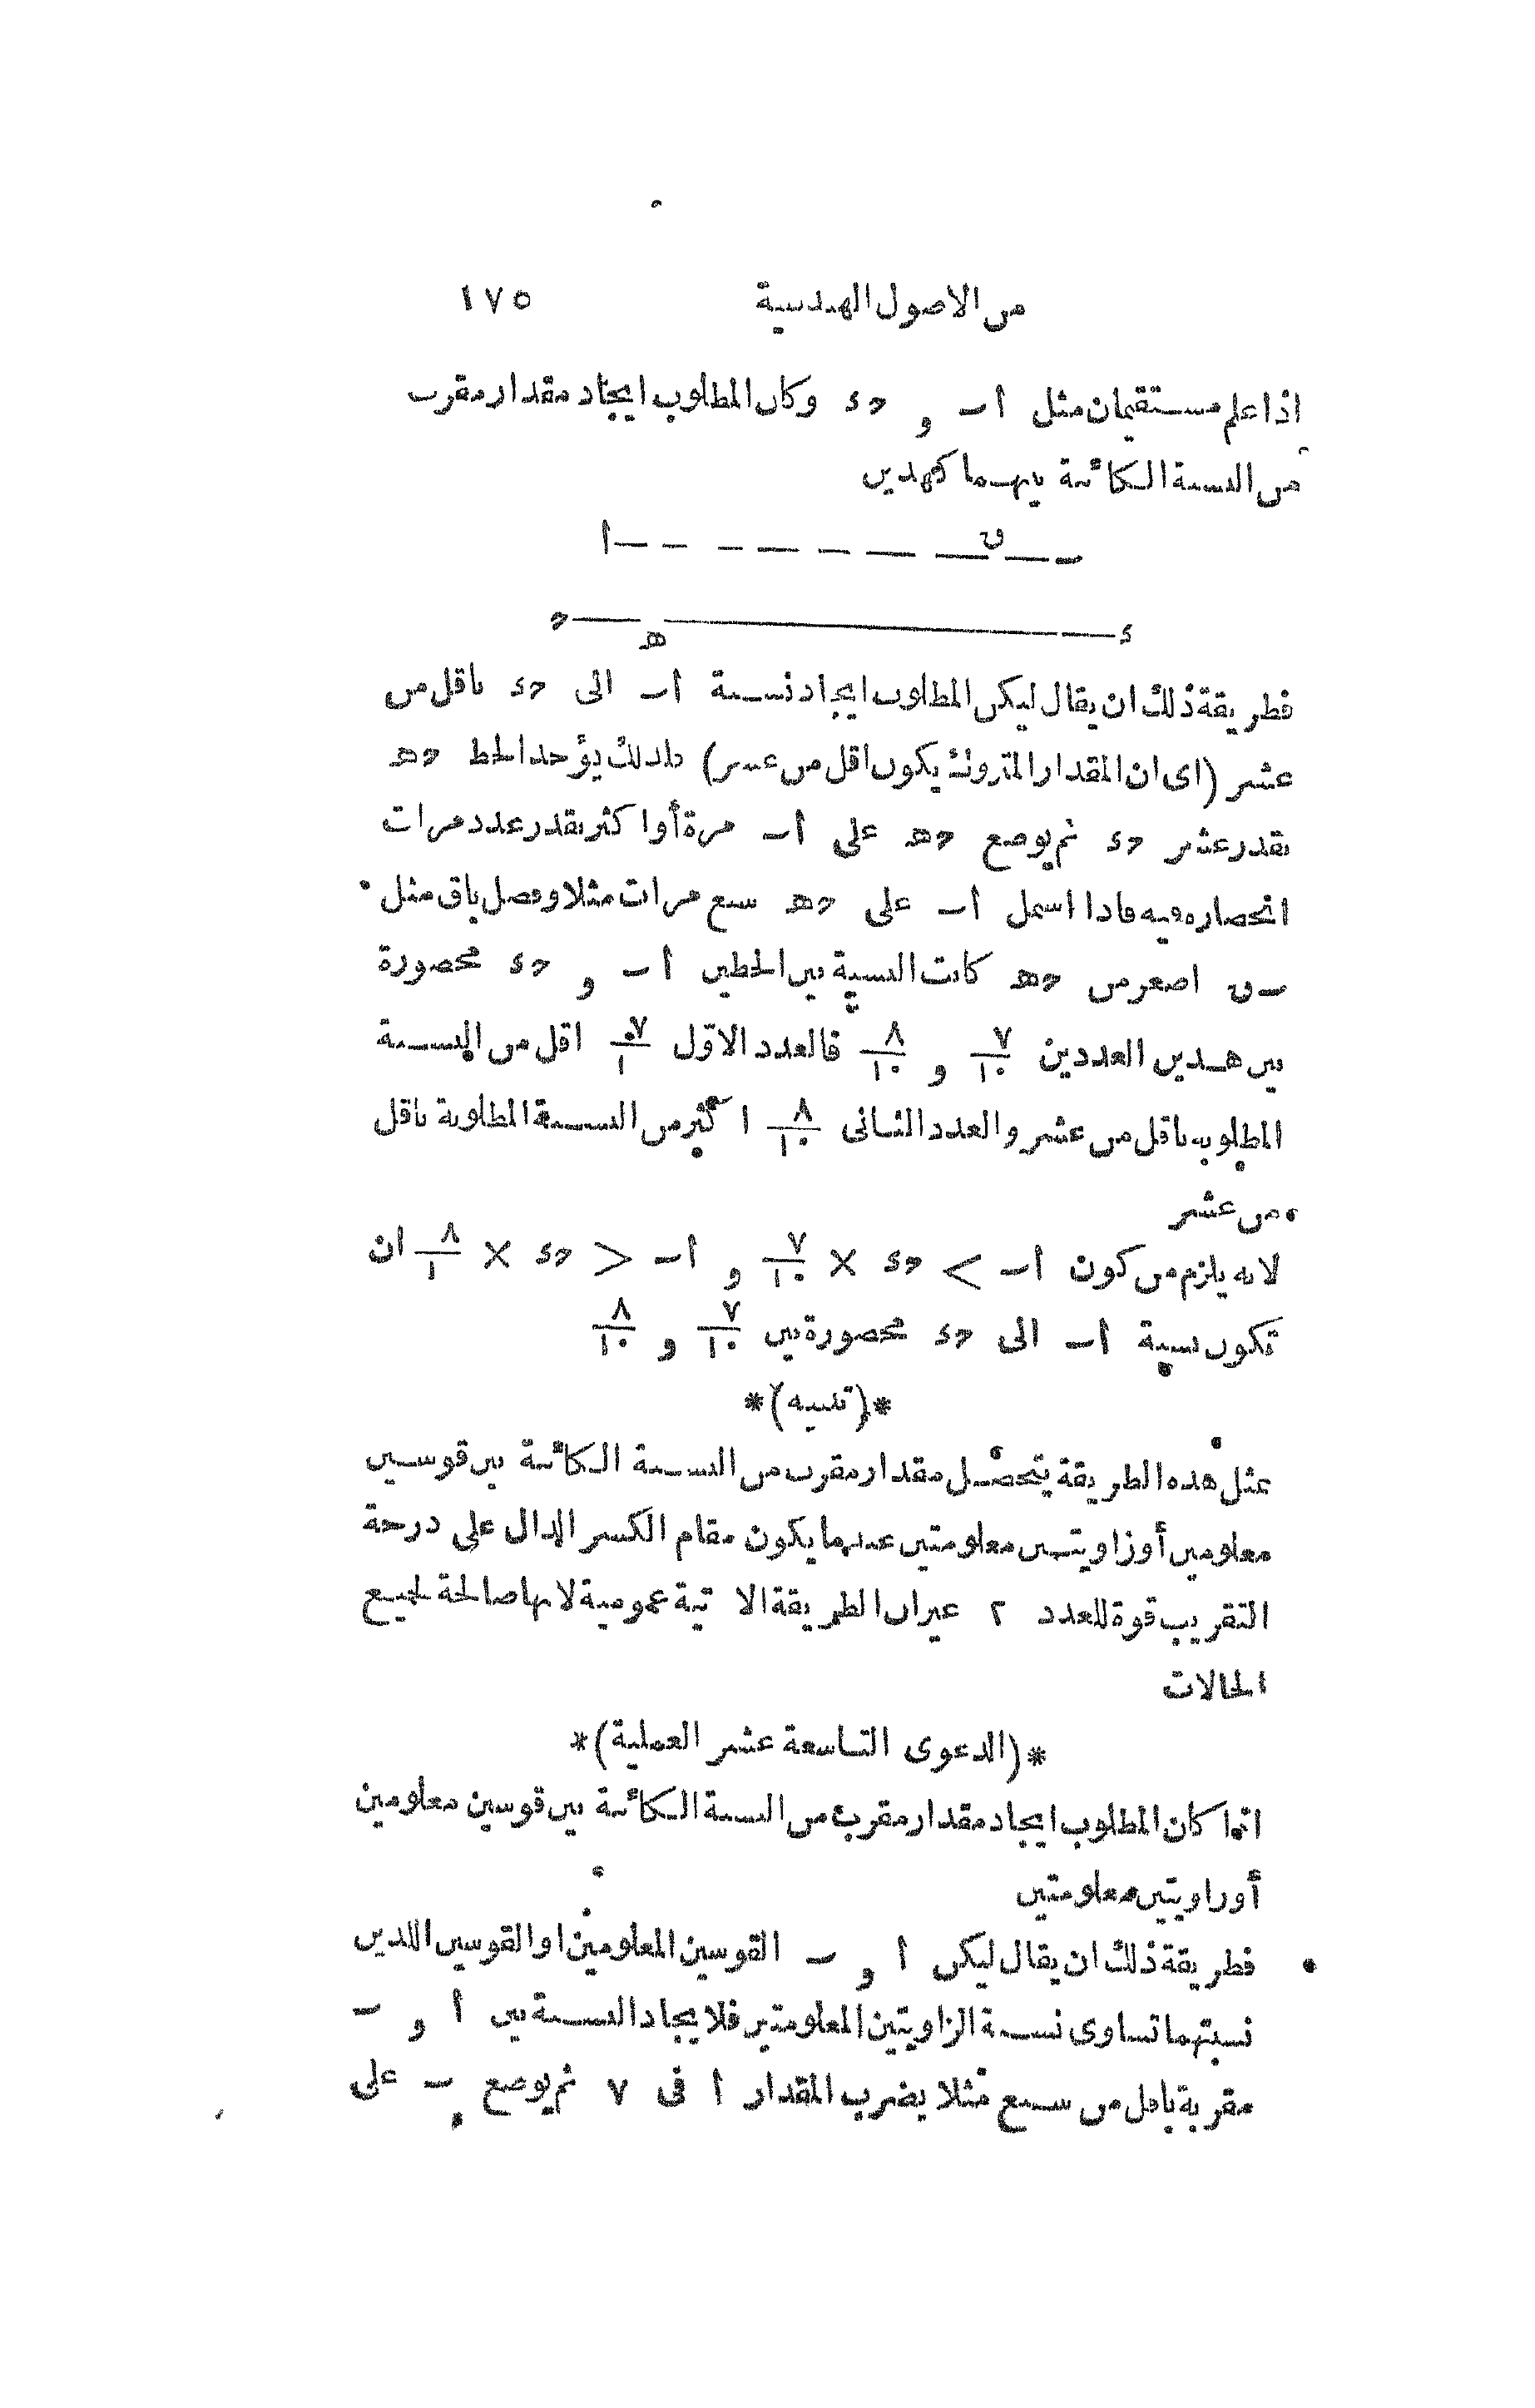 من الاصول الهندسية ١٧٥
اذا علم مستقيمان مثل أ ب و حد وكان المطلوب ايجاد مقدار مقرب
من النسبة الكائنة بينهما كهذين
أ ن ب
ح ه د
فطريقة ذلك ان يقال ليكن المطلوب ايجاد نسبة أ ب الى حد باقل من
عشر (اى ان المقدار المتروك يكون اقل من عشر) فلذلك يؤخذ الخط حه
بقدر عشر حد ثم يوضع حه على أ ب مرة أو اكثر بقدر عدد مرات
انحصاره فيه فاذا اشتمل أ ب على حه سبع مرات مثلا وفضل باق مثل
ب ن اصغر من حه كانت النسبة بين الخطين أ ب و حد محصورة
بين هذين العددين ٧/١٠ و ٨/١٠ فالعدد الاوّل ٧/١٠ اقل من النسبة
المطلوبة باقل من عشر والعدد الثانى ٨/١٠ اكثر من النسبة المطلوبة باقل
من عشر
لانه يلزم من كون أ ب > حد × ٧/١٠ و أ ب < حد × ٨/١ ان
تكون نسبة أ ب الى حد محصورة بين ٧/١٠ و ٨/١٠
*(تنبيه)*
بمثل هذه الطريقة يتحصل مقدار مقرب من النسبة الكائنة بين قوسين
معلومين أو زاويتين معلومتين عندما يكون مقام الكسر الدال على درجة
التقريب قوة للعدد ٢ غير ان الطريقة الاتية عمومية لانها صالحة لجميع
الحالات
*(الدعوى التاسعة عشر العملية)*
اذا كان المطلوب ايجاد مقدار مقرب من النسبة الكائنة بين قوسين معلومين
أو زاويتين معلومتين
فطريقة ذلك ان يقال ليكن أ و ب القوسين المعلومين او القوسين اللذين
نسبتهما تساوى نسبة الزاويتين المعلومتين فلايجاد النسبة بين أ و ب
مقربة باقل من سبع مثلا يضرب المقدار أ فى ٧ ثم يوضع ب على